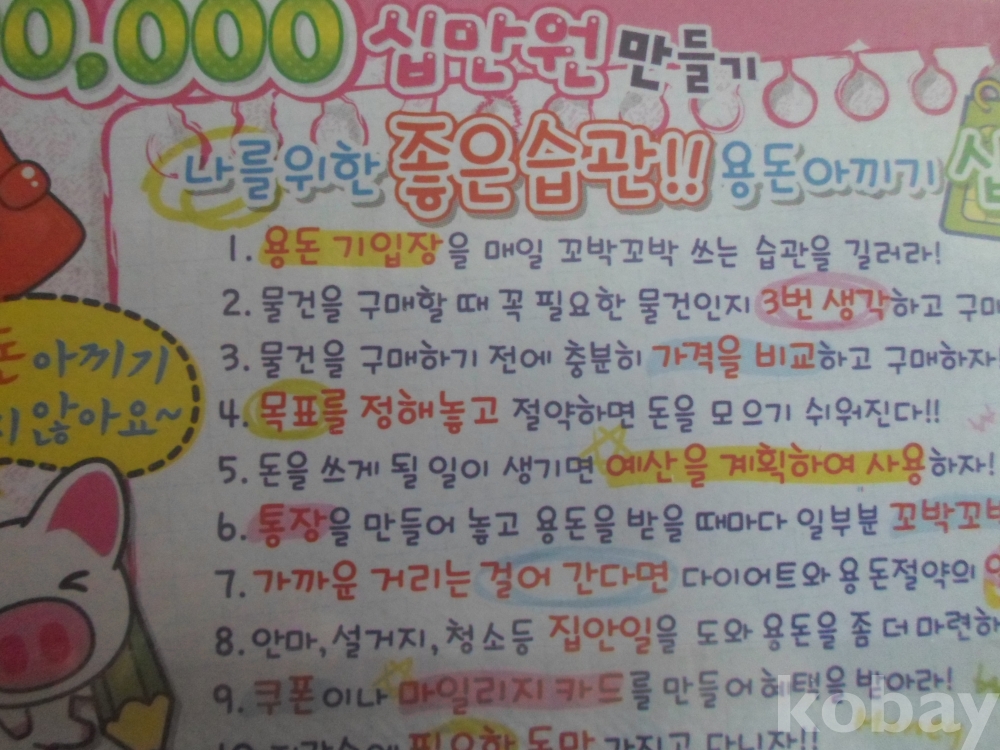 0,000 십만원 만들기
나를위한 좋은습관!! 용돈아끼기
1. 용돈 기입장을 매일 꼬박꼬박 쓰는 습관을 길러라!
2. 물건을 구매할 때 꼭 필요한 물건인지 3번 생각하고 구매
3. 물건을 구매하기 전에 충분히 가격을 비교하고 구매하자!
4. 목표를 정해놓고 절약하면 돈을 모으기 쉬워진다!!
5. 돈을 쓰게 될 일이 생기면 예산을 계획하여 사용하자!
6. 통장을 만들어 놓고 용돈을 받을 때마다 일부분 꼬박꼬박
7. 가까운 거리는 걸어 간다면 다이어트와 용돈절약의
8. 안마, 설거지, 청소등 집안일을 도와 용돈을 좀 더 마련하
9. 쿠폰이나 마일리지 카드를 만들어 혜택을 받아라!
필요한 돈만 가지고 다니자!!
돈 아끼기
않아요~
kobay